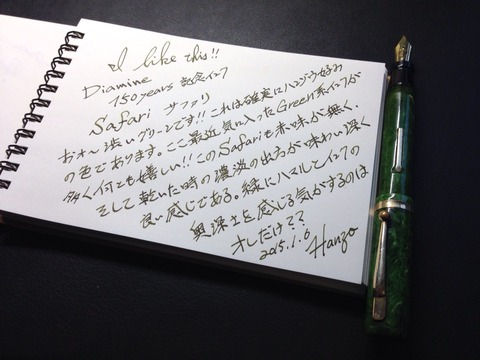 I like this!!
Diamine
150years 記念インク
Safari サファリ
おォ〜渋いグリーンです!! これは確実にハンゾウ好み
の色であります。ここ最近気に入ったGreen系インクが
多く何とも嬉しい!! このSafariも赤味が無く、
そして乾いた時の濃淡の出方が味わい深く
良い感じである。緑にハマルとインクの
奥深さを感じる気がするのは
オレだけ??
2015.1.6 Hanzo